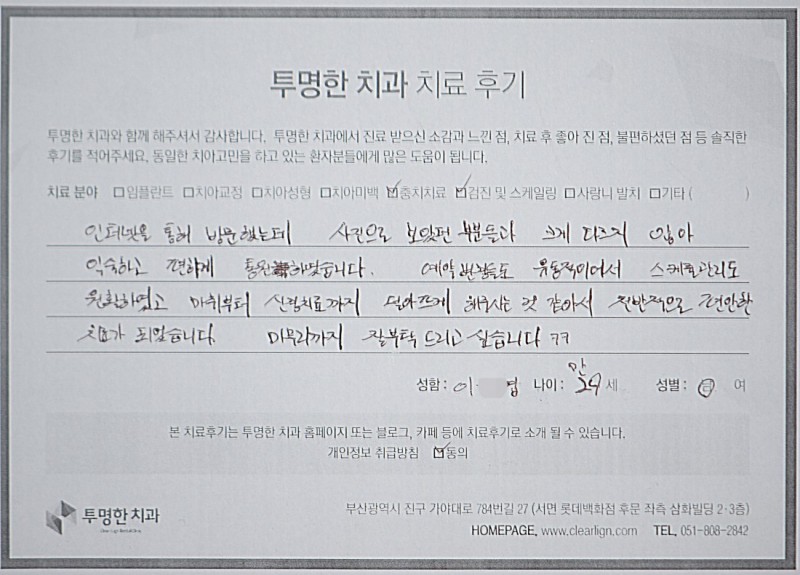 투명한 치과 치료 후기
투명한 치과와 함께 해주셔서 감사합니다. 투명한 치과에서 진료 받으신 소감과 느낀 점, 치료 후 좋아 진 점, 불편하셨던 점 등 솔직한
후기를 적어주세요. 동일한 치아고민을 하고 있는 환자분들에게 많은 도움이 됩니다.
치료 분야 □임플란트 □치아교정 □치아성형 □치아미백 ☑충치치료 ☑검진 및 스케일링 □사랑니 발치 □기타 ( )
인터넷을 통해 방문했는데 사진으로 보았던 부분들과 크게 다르지 않아
익숙하고 편하게 통원하였습니다. 예약변경들도 유동적이어서 스케줄관리도
원활하였고 마취부터 신경치료까지 덜아프게 해주시는 것 같아서 전반적으로 편안한
치료가 되었습니다. 마무리까지 잘부탁 드리고 싶습니다 ㅋㅋ
성함: 이 엽 나이: 만 29 세 성별: 남 여
본 치료후기는 투명한 치과 홈페이지 또는 블로그, 카페 등에 치료후기로 소개 될 수 있습니다.
개인정보 취급방침 ☑동의
투명한 치과
부산광역시 진구 가야대로 784번길 27 (서면 롯데백화점 후문 좌측 삼화빌딩 2·3층)
HOMEPAGE. www.clearlign.com TEL. 051-808-2842